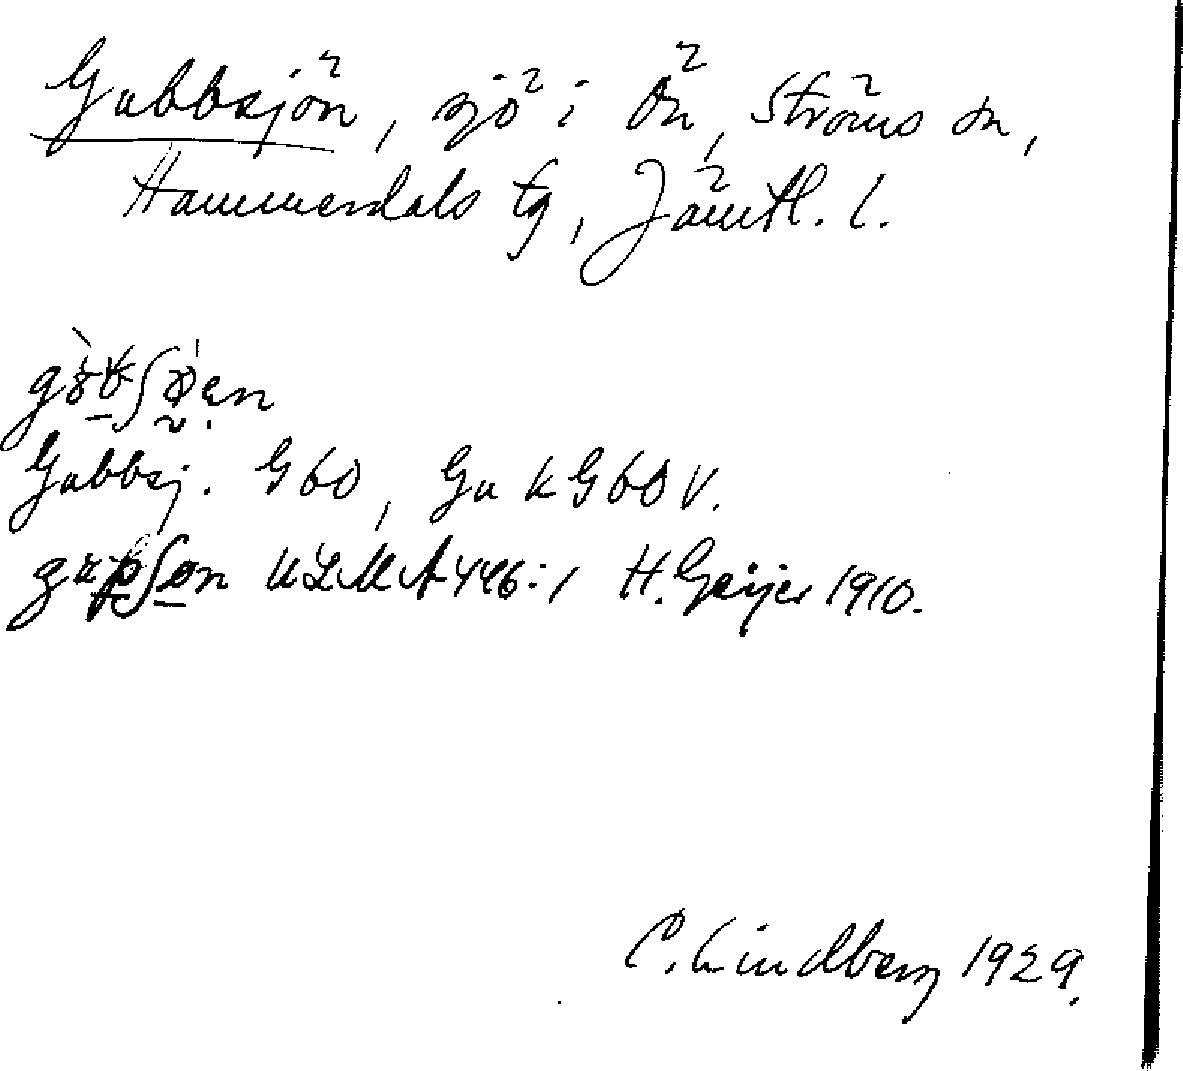 Gubbsjön, sjö i Ön, Ströms sn,
Hammerdals tg, Jämtl. l.
Gubbsj. GbO, Gu k GbO V.
ULMA 446:1 H. Geijer 1910.
C. Lindberg 1929.